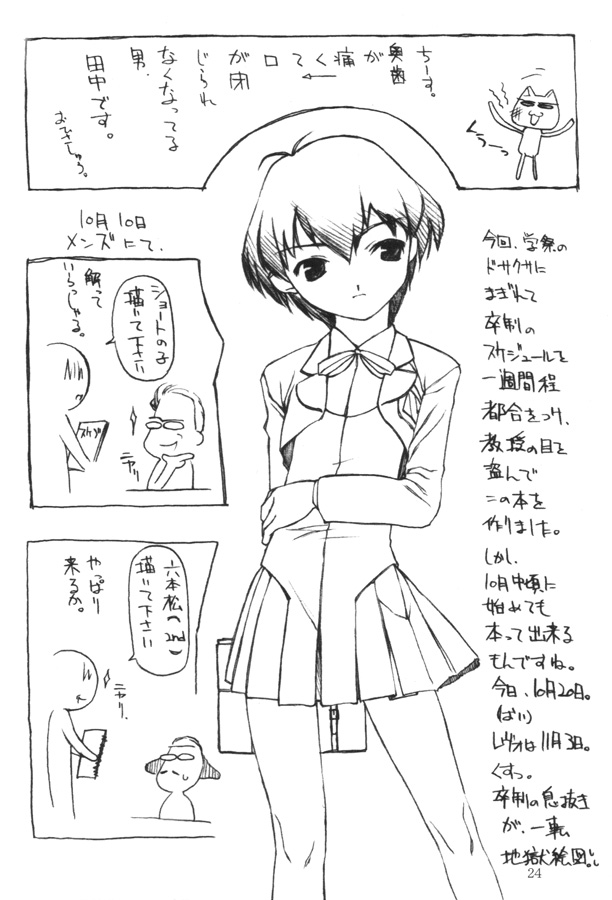 ちーす。
奥歯
が痛
くて口
が閉
じられ
なくなってる
男、
田中です。
おひさしゅう。
くぅーっ
10月10日
メンズにて。
ショートの子
描いて下さい
解って
いらっしゃる。
スケブ
ニヤリ
六本松(2nd)
描いて下さい
やっぱり
来るか。
ニヤリ
今回、学祭の
ドサクサに
まぎれて
卒制の
スケジュールを
一週間程
都合をつけ、
教授の目を
盗んで
この本を
作りました。
しかし、
10月中頃に
始めても
本って出来る
もんですね。
今日、10月20日。
(ばい)
レヴォは11月3日。
くすっ。
卒制の息抜き
が、一転
地獄絵図。
24